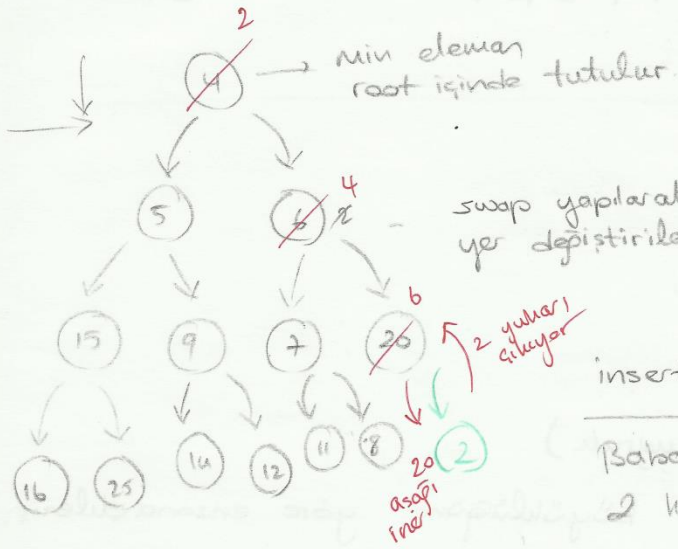 2
4 → min eleman
root içinde tutulur.
5
6 4
swap yapılarak
yer değiştirile
15
9
7
20 6
2 yukarı
çıkıyor
16
25
14
12
11
8
20
aşağı
iner
2
inser
Baba
2